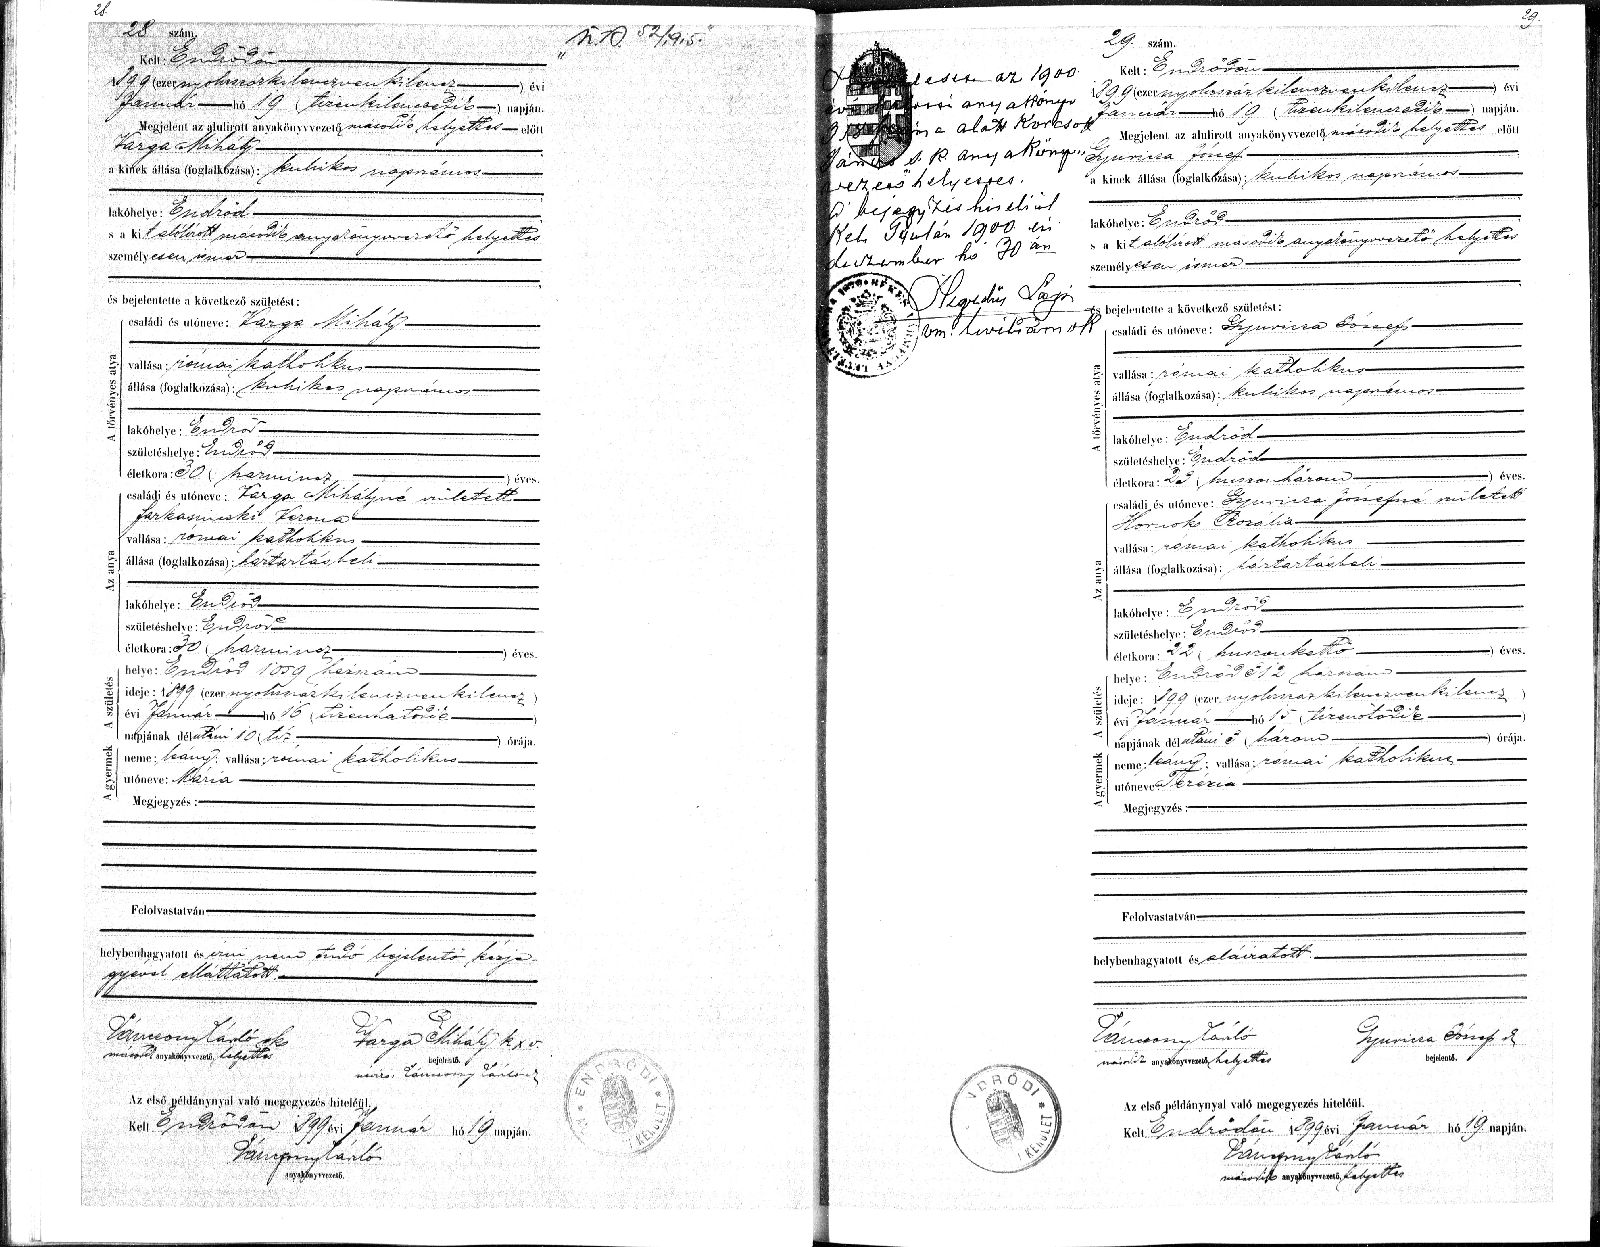 28.
28 szám.
Kelt: Endrődön
1899 (ezernyolczszázkilenczvenkilencz) évi
Január hó 19 (tizenkilenczedik) napján.
Megjelent az alulirott anyakönyvvezető második helyettes előtt
Varga Mihály
a kinek állása (foglalkozása): kubikos napszámos
lakóhelye: Endrőd
s a kit alólirott második anyakönyvvezető helyettes
személyesen ismer
és bejelentette a következő születést:
A törvényes atya
családi és utóneve: Varga Mihály
vallása: római katholikus
állása (foglalkozása): kubikos napszámos
lakóhelye: Endrőd
születéshelye: Endrőd
életkora: 30 (harmincz) éves.
Az anya
családi és utóneve: Varga Mihályné született
Farkasinszki Verona
vallása: római katholikus
állása (foglalkozása): háztartásbeli
lakóhelye: Endrőd
születéshelye: Endrőd
életkora: 30 (harmincz) éves.
A születés
helye: Endrőd 1059 házszám
ideje: 1899 (ezernyolczszázkilenczvenkilencz)
évi Január hó 16 (tizenhatodik)
napjának délutáni 10 (tiz) órája.
A gyermek
neme: leány; vallása: római katholikus
utóneve: Mária
Megjegyzés:
Felolvastatván
helybenhagyatott és irni nem tudó bejelentő kézje-
gyével elláttatott.
Vánczony László sk
második anyakönyvvezető, helyettes
Varga Mihály k x v.
bejelentő.
Az első példánynyal való megegyezés hiteléül.
Kelt Endrődön 1899 évi Január hó 19 napján.
anyakönyvvezető.
ENDRŐDI
KERÜLET
29.
évi
s. k. anyaköny-
vezető helyettes.
A bejegyzés hiteléül
Kelt Gyulán 1900 évi
deczember hó 30 án
Hegedűs
29. szám.
Kelt: Endrődön
1899 (ezernyolczszázkilenczvenkilencz) évi
Január hó 19 (tizenkilenczedik) napján.
Megjelent az alulirott anyakönyvvezető második helyettes előtt
Gyuricza József
a kinek állása (foglalkozása): kubikos napszámos
lakóhelye: Endrőd
s a kit alólirott második anyakönyvvezető helyettes
személyesen ismer
és bejelentette a következő születést:
A törvényes atya
családi és utóneve: Gyuricza József
vallása: római katholikus
állása (foglalkozása): kubikos napszámos
lakóhelye: Endrőd
születéshelye: Endrőd
életkora: 23 (huszonhárom) éves.
Az anya
családi és utóneve: Gyuricza Józsefné született
Hornok Rozália
vallása: római katholikus
állása (foglalkozása): háztartásbeli
lakóhelye: Endrőd
születéshelye: Endrőd
életkora: 22 (huszonkettő) éves.
A születés
helye: Endrőd 312 házszám
ideje: 1899 (ezernyolczszázkilenczvenkilencz)
évi Január hó 15 (tizenötödik)
napjának délutáni 3 (három) órája.
A gyermek
neme: leány; vallása: római katholikus
utóneve: Terézia
Megjegyzés:
Felolvastatván
helybenhagyatott és aláiratott.
Vánczony László
második anyakönyvvezető, helyettes
Gyuricza József
bejelentő.
Az első példánynyal való megegyezés hiteléül.
Kelt Endrődön 1899 évi Január hó 19 napján.
Vánczony László
második anyakönyvvezető, helyettes
KERÜLET